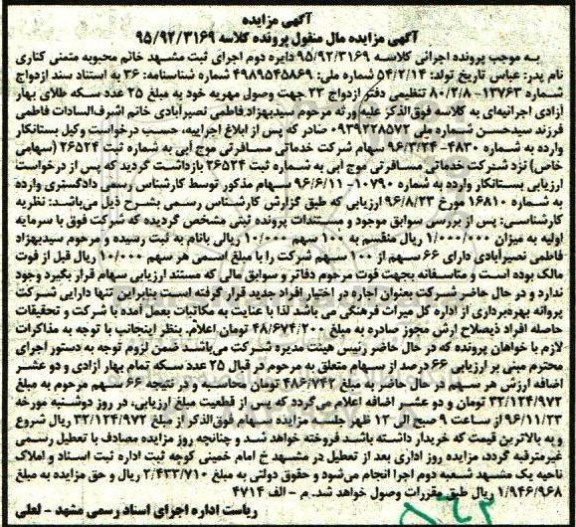 آگهی مزایده
آگهی مزایده مال منقول پرونده کلاسه ۹۵/۹۲/۳۱۶۹
به موجب پرونده اجرائی کلاسه ۹۵/۹۲/۳۱۶۹ دایره دوم اجرای ثبت مشهد خانم محبوبه متمنی کناری
نام پدر: عباس تاریخ تولد: ۵۴/۲/۱۴ شماره ملی: ۴۹۸۹۵۴۵۸۶۹ شماره شناسنامه: ۳۶ به استناد سند ازدواج
شماره ۱۳۷۶۳- ۸۰/۲/۸ تنظیمی دفتر ازدواج ۲۳ جهت وصول مهریه خود به مبلغ ۲۵ عدد سکه طلای بهار
آزادی اجرائیه‌ای به کلاسه فوق‌الذکر علیه ورثه مرحوم سیدبهزاد فاطمی نصیرآبادی خانم اشرف‌السادات فاطمی
فرزند سیدحسن شماره ملی ۰۹۳۹۲۲۸۵۷۲ صادر که پس از ابلاغ اجراییه، حسب درخواست وکیل بستانکار
وارده به شماره ۴۸۳۰- ۹۶/۳/۲۴ سهام شرکت خدماتی مسافرتی موج آبی به شماره ثبت ۲۶۵۲۴ (سهامی
خاص) نزد شرکت خدماتی مسافرتی موج آبی به شماره ثبت ۲۶۵۲۴ بازداشت گردید که پس از درخواست
ارزیابی بستانکار وارده به شماره ۱۰۷۹۰- ۹۶/۶/۱۱ سهام مذکور توسط کارشناس رسمی دادگستری وارده
به شماره ۱۶۸۱۰ مورخ ۹۶/۸/۲۳ ارزیابی که طبق گزارش کارشناس رسمی بشرح ذیل می‌باشد: نظریه
کارشناسی: پس از بررسی سوابق موجود و مستندات پرونده ثبتی مشخص گردیده که شرکت فوق با سرمایه
اولیه به میزان ۱/۰۰۰/۰۰۰ ریال منقسم به ۱۰۰ سهم ۱۰/۰۰۰ ریالی بانام به ثبت رسیده و مرحوم سیدبهزاد
فاطمی نصیرآبادی دارای ۶۶ سهم از ۱۰۰ سهم شرکت را با مبلغ اسمی هر سهم ۱۰/۰۰۰ ریال قبل از فوت
مالک بوده است و متاسفانه بجهت فوت مرحوم دفاتر و سوابق مالی که مستند ارزیابی سهام قرار بگیرد وجود
ندارد و در حال حاضر شرکت بعنوان اجاره در اختیار افراد جدید قرار گرفته است بنابراین تنها دارایی شرکت
پروانه بهره‌برداری از اداره کل میراث فرهنگی می باشد لذا با عنایت به مکاتبات بعمل آمده با شرکت و تحقیقات
حاصله افراد ذیصلاح ارش مجوز صادره به مبلغ ۴۸/۶۷۴/۲۰۰ تومان اعلام، بنظر اینجانب با توجه به مذاکرات
لازم با خواهان پرونده که در حال حاضر رئیس هیئت مدیره شرکت می‌باشد ضمن لزوم توجه به دستور اجرای
محترم مبنی بر ارزیابی ۶۶ درصد از سهام متعلق به مرحوم در قبال ۲۵ عدد سکه تمام بهار آزادی و دو عشر
اضافه ارزش هر سهم در حال حاضر به مبلغ ۴۸۶/۷۴۲ تومان محاسبه و در نتیجه ۶۶ سهم مرحوم به مبلغ
۳۲/۱۲۴/۹۷۲ تومان و دو عشیر اضافه اعلام می‌گردد که پس از قطعیت مبلغ ارزیابی، در روز دوشنبه مورخه
۹۶/۱۱/۲۳ از ساعت ۹ صبح الی ۱۲ ظهر جلسه مزایده سهام فوق‌الذکر از مبلغ ۳۲/۱۲۴/۹۷۲ ریال شروع
و به بالاترین قیمت که خریدار داشته باشد فروخته خواهد شد و چنانچه روز مزایده مصادف با تعطیل رسمی
غیرمترقبه گردد، مزایده روز اداری بعد از تعطیل در مشهد خ امام خمینی کوچه ثبت اداره ثبت اسناد و املاک
ناحیه یک مشهد شعبه دوم اجرا انجام می‌شود و حقوق دولتی به مبلغ ۲/۴۳۳/۷۱۰ ریال و حق مزایده به مبلغ
۱/۹۴۶/۹۶۸ ریال طبق مقررات وصول خواهد شد. م - الف ۴۷۱۴
ریاست اداره اجرای اسناد رسمی مشهد - لعلی